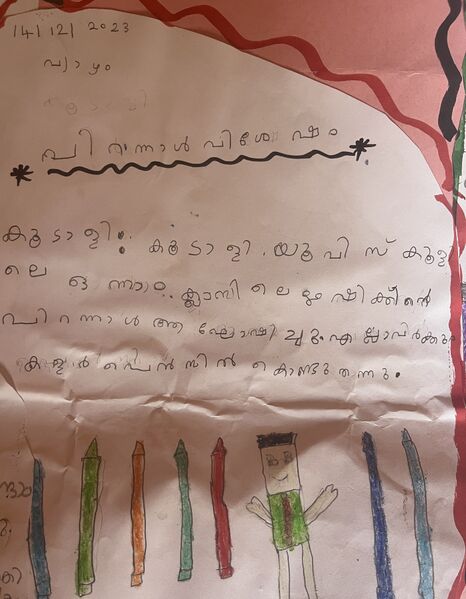 14/12/2023
വ്യാഴം
പിറന്നാൾ വിശേഷം
കൂടാളി: കൂടാളി യൂപി സ്കൂളി
ലെ ഒന്നാം ക്ലാസിലെ ഋഷിക്കിന്റെ
പിറന്നാൾ ആഘോഷിച്ചു. എല്ലാവർക്കും
കളർപെൻസിൽ കൊണ്ടുതന്നു.